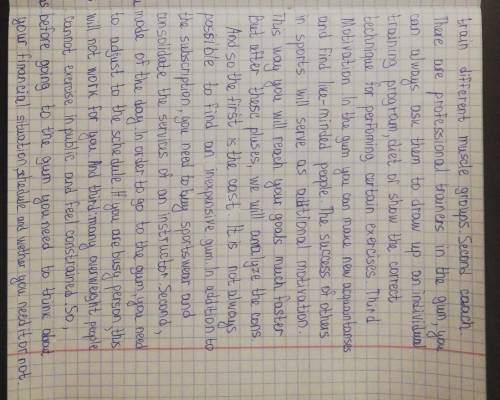 train different muscle groups. Second coach.
There are professional trainers in the gum, you
can always ask them to draw up an individual
training program, diet of show the correct
technique for perfuming certain exercises. Third
Motivation. In the gum you can make new acquaintanses
and find like-minded people. The success of others
in sports will serve as additional motivation.
This way you will reach your goals much faster
But after these pluses, we will analyze the cons
And so the first is the cost. It is not always
possible to find an inexpensive gum. In addition to
the subscription, you need to buy sportswear and
onsolidate the services of an instructor. Second,
mode of the day. In order to go to the gum you need
to adjust to the schedule. If you are busy person, this
will not work for you. And third: many overweight people
cannot exercise in public and feel constrained. So,
before going to the gum you need to think about
your financial situation, schedule and wether you need it or not.